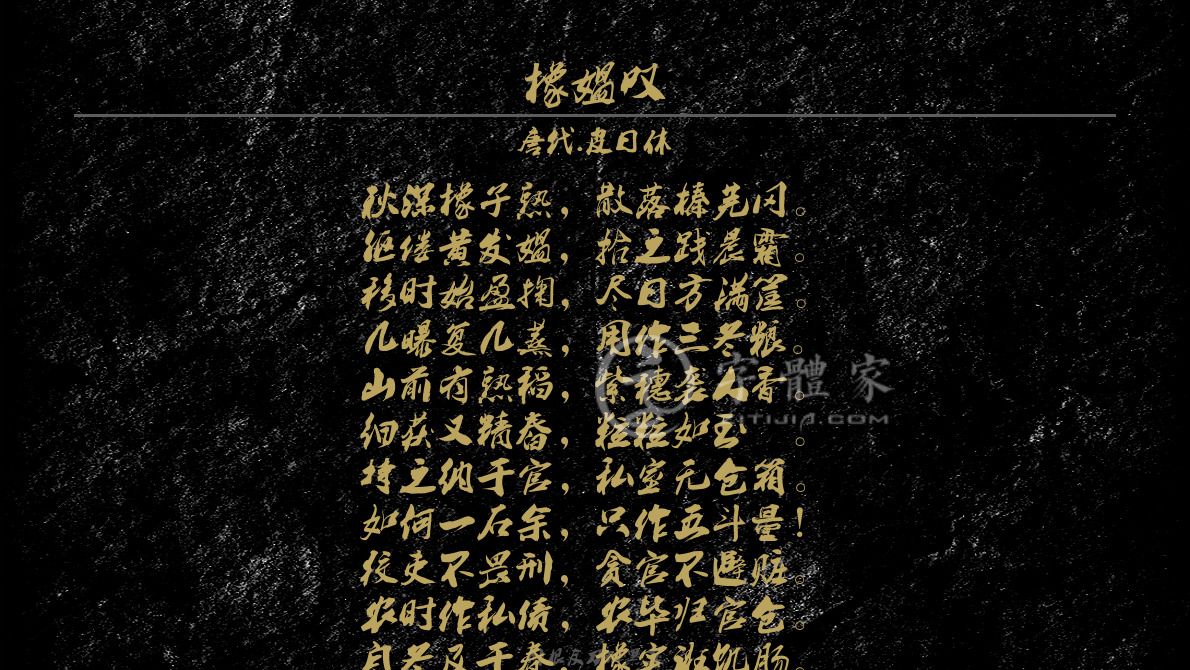 橡媪叹
唐代.皮日休
秋深橡子熟，散落榛芜冈。
伛偻黄发媪，拾之践晨霜。
移时始盈掬，尽日方满筐。
几曝复几蒸，用作三冬粮。
山前有熟稻，紫穗袭人香。
字體家
ZITIJIA.COM
细获又精舂，粒粒如玉 。
持之纳于官，私室无仓箱。
如何一石余，只作五斗量！
狡吏不畏刑，贪官不避赃。
农时作私债，农毕归官仓。
自冬及于春，橡实诳饥肠。